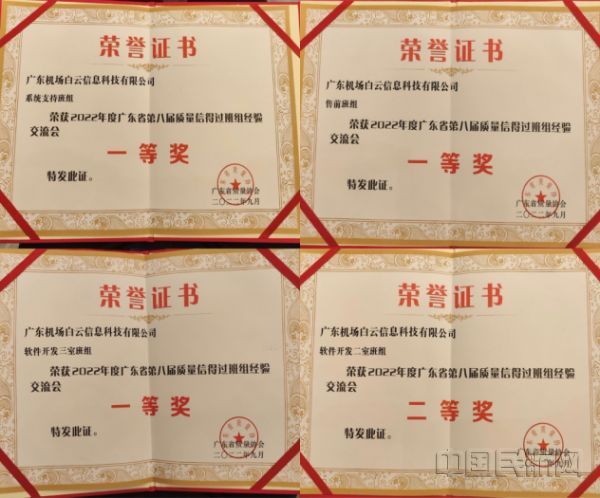 荣誉证书
广东机场白云信息科技有限公司
系统支持班组
荣获2022年度广东省第八届质量信得过班组经验
交流会
一等奖
特发此证。
广东省质量协会
二〇二二年九月
荣誉证书
广东机场白云信息科技有限公司
售前班组
荣获2022年度广东省第八届质量信得过班组经验
交流会
一等奖
特发此证。
广东省质量协会
二〇二二年九月
荣誉证书
广东机场白云信息科技有限公司
软件开发三室班组
荣获2022年度广东省第八届质量信得过班组经验
交流会
一等奖
特发此证。
广东省质量协会
二〇二二年九月
荣誉证书
广东机场白云信息科技有限公司
软件开发二室班组
荣获2022年度广东省第八届质量信得过班组经验
交流会
二等奖
特发此证。
中国民航网